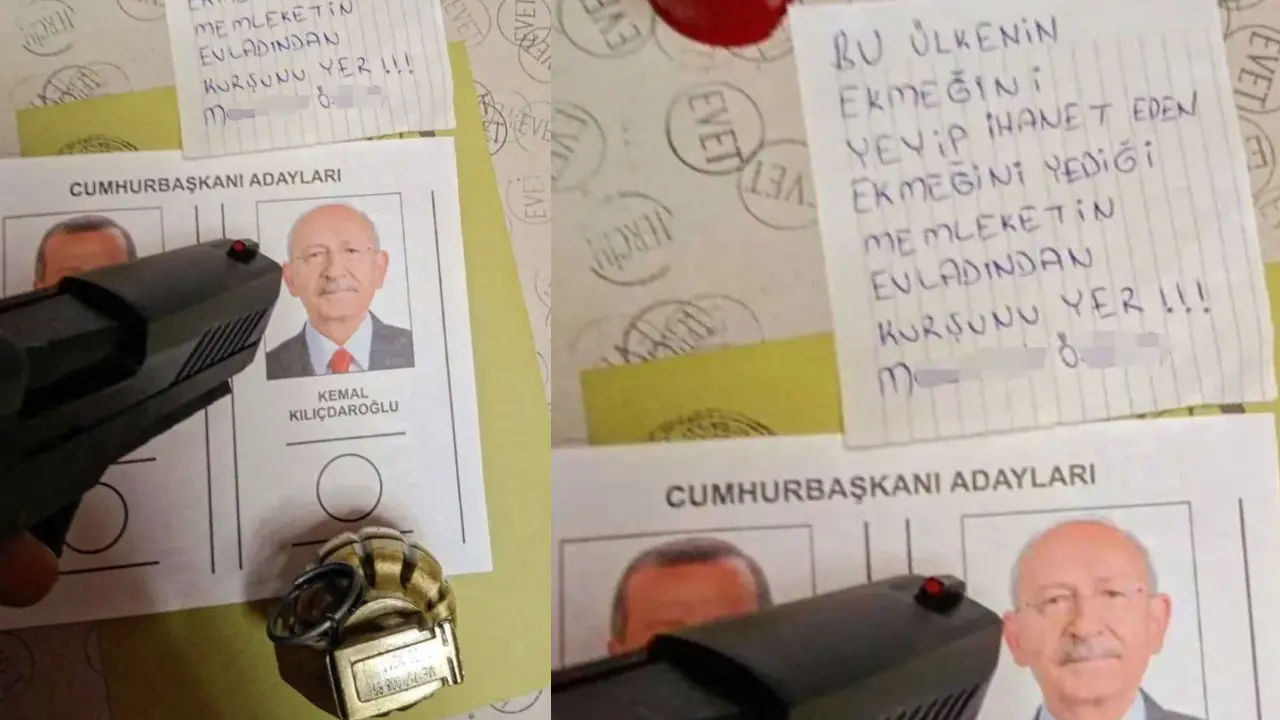 MEMLEKETİN
EVLADINDAN
KURŞUNU YER!!!
M Ö
CUMHURBAŞKANI ADAYLARI
KEMAL
KILIÇDAROĞLU
EVET
BU ÜLKENİN
EKMEĞİNİ
YEYİP İHANET EDEN
EKMEĞİNİ YEDİĞİ
MEMLEKETİN
EVLADINDAN
KURŞUNU YER!!!
M Ö
EVET
EVET
EVET
TERCİH
EVET
CUMHURBAŞKANI ADAYLARI